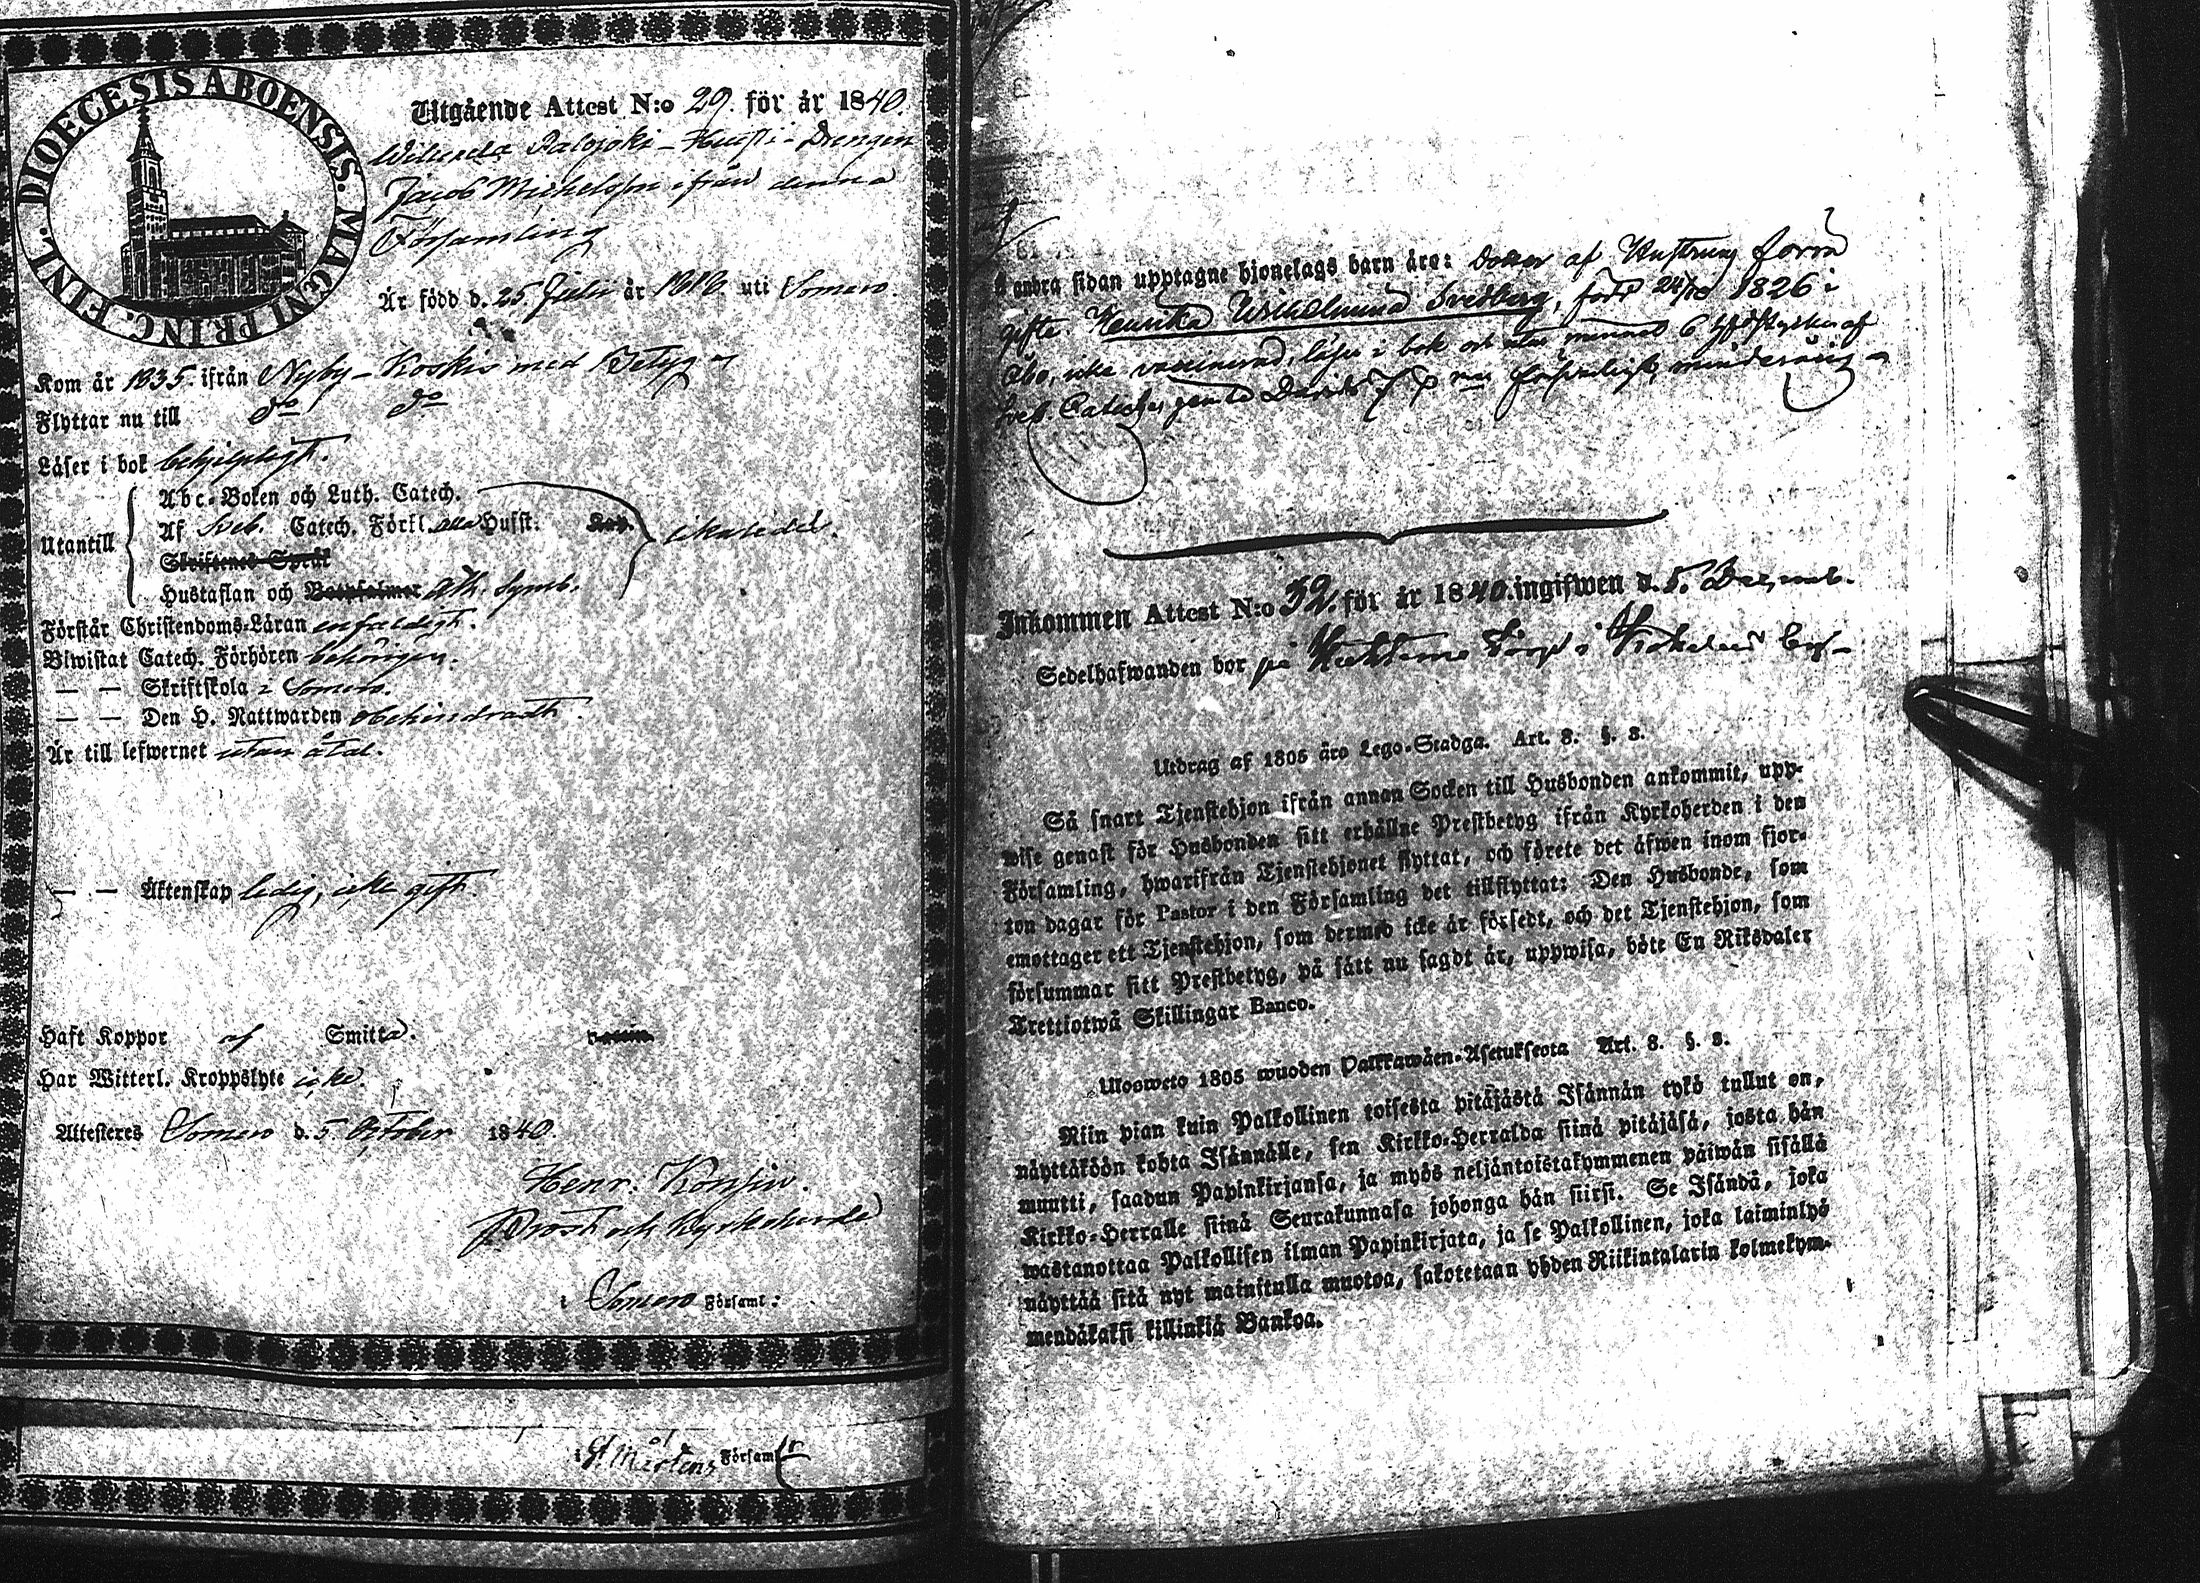 DIOECESIS ABOENSIS. MAGNI PRINC. FINL.
Utgående Attest N:o 29. för år 1840.
Palojoki - Drengen
Jacob Michelsson ifrån denna
Församling
Är född d. 25 Julii år 1818 uti Somero.
Kom år 1835. ifrån Nyby-Koskis med Betyg
Flyttar nu till do do
Läser i bok behjelpligt.
Utantill
Abc-Boken och Luth. Catech.
Af Sveb. Catech. Förkl. alla Husst. Kap.
Skriftenes Språk
Hustaflan och Botpsalmer Ath. Symb.
Förstår Christendoms-Läran enfaldigt.
Biwistat Catech. Förhören behörigen.
— — Skriftskola i Somero.
— — Den H. Nattwarden obehindradt.
Är till lefwernet utan åtal.
— — Äktenskap ledig, icke gift.
Haft Koppor af Smitta. Vaccin.
Har Witterl. Kroppslyte icke.
Attesteres Somero d. 5 October 1840.
Henr. Konsin.
Prost och Kyrkoherde
i Somero Församl:
i St Mårtens Församl
Å andra sidan upptagne hjonelags barn äro: Dotter af Hustrung förra
gifte Henrika Wilhelmina Svedberg, född 24/10 1826 i
Åbo, icke vaccinerad, läser i bok och utan minnet 6 Hufstycken af
Sveb. Cateches jemte Davids minderårig
Inkommen Attest N:o 32. för år 1840. ingifwen d. 5. Decemb.
Sedelhafwanden bor på Torp i by
Utdrag af 1805 års Lego-Stadga. Art. 8. §. 8.
Så snart Tjenstehjon ifrån annan Socken till Husbonden ankommit, upp-
wise genast för Husbonden sitt erhållne Prestbetyg ifrån Kyrkoherden i den
Församling, hwarifrån Tjenstehjonet flyttat, och förete det äfwen inom fjor-
ton dagar för Pastor i den Församling det tillflyttat: Den Husbonde, som
emottager ett Tjenstehjon, som dermed icke är försedt, och det Tjenstehjon, som
försummar sitt Prestbetyg, på sätt nu sagdt är, uppwisa, böte En Riksdaler
Trettiotwå Skillingar Banco.
Ulosweto 1805 wuoden Palkkawäen-Asetuksesta Art. 8. §. 8.
Niin pian kuin Palkollinen toisesta pitäjästä Isännän tykö tullut on,
näyttäköön kohta Isännälle, sen Kirkko-Herralda siinä pitäjäsä, josta hän
muutti, saadun Papinkirjansa, ja myös neljäntoistakymmenen päiwän sisällä
Kirkko-Herralle siinä Seurakunnasa johonga hän siirsi. Se Isändä, joka
wastanottaa Palkollisen ilman Papinkirjata, ja se Palkollinen, joka laiminlyö
näyttää sitä nyt mainitulla muotoa, sakotetaan yhden Riikintalarin kolmekym-
mendäkaksi killinkiä Bankoa.